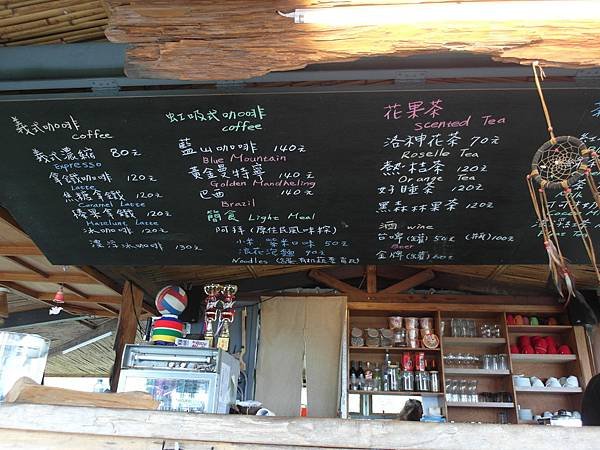 義式咖啡
coffee
義式濃縮 80元
Espresso
拿鐵咖啡 120元
Latte
焦糖拿鐵 120元
Caramel Latte
榛果拿鐵 120元
Hazelunt Latte
冰咖啡 120元
漂浮冰咖啡 130元
虹吸式咖啡
coffee
藍山咖啡 140元
Blue Mountain
黃金曼特寧 140元
Golden Mandheling
巴西 140元
Brazil
簡食 Light Meal
阿拜 (原住民風味粽)
小米 紫米口味 50元
浪花泡麵 90元
Noodles
花果茶
Scented Tea
洛神花茶 70元
Roselle Tea
熱桔茶 120元
Orange Tea
好睡茶 120元
黑森林果茶 120元
酒 wine
台啤(罐) 50元 (瓶)100元
Beer
金牌(罐) 60元